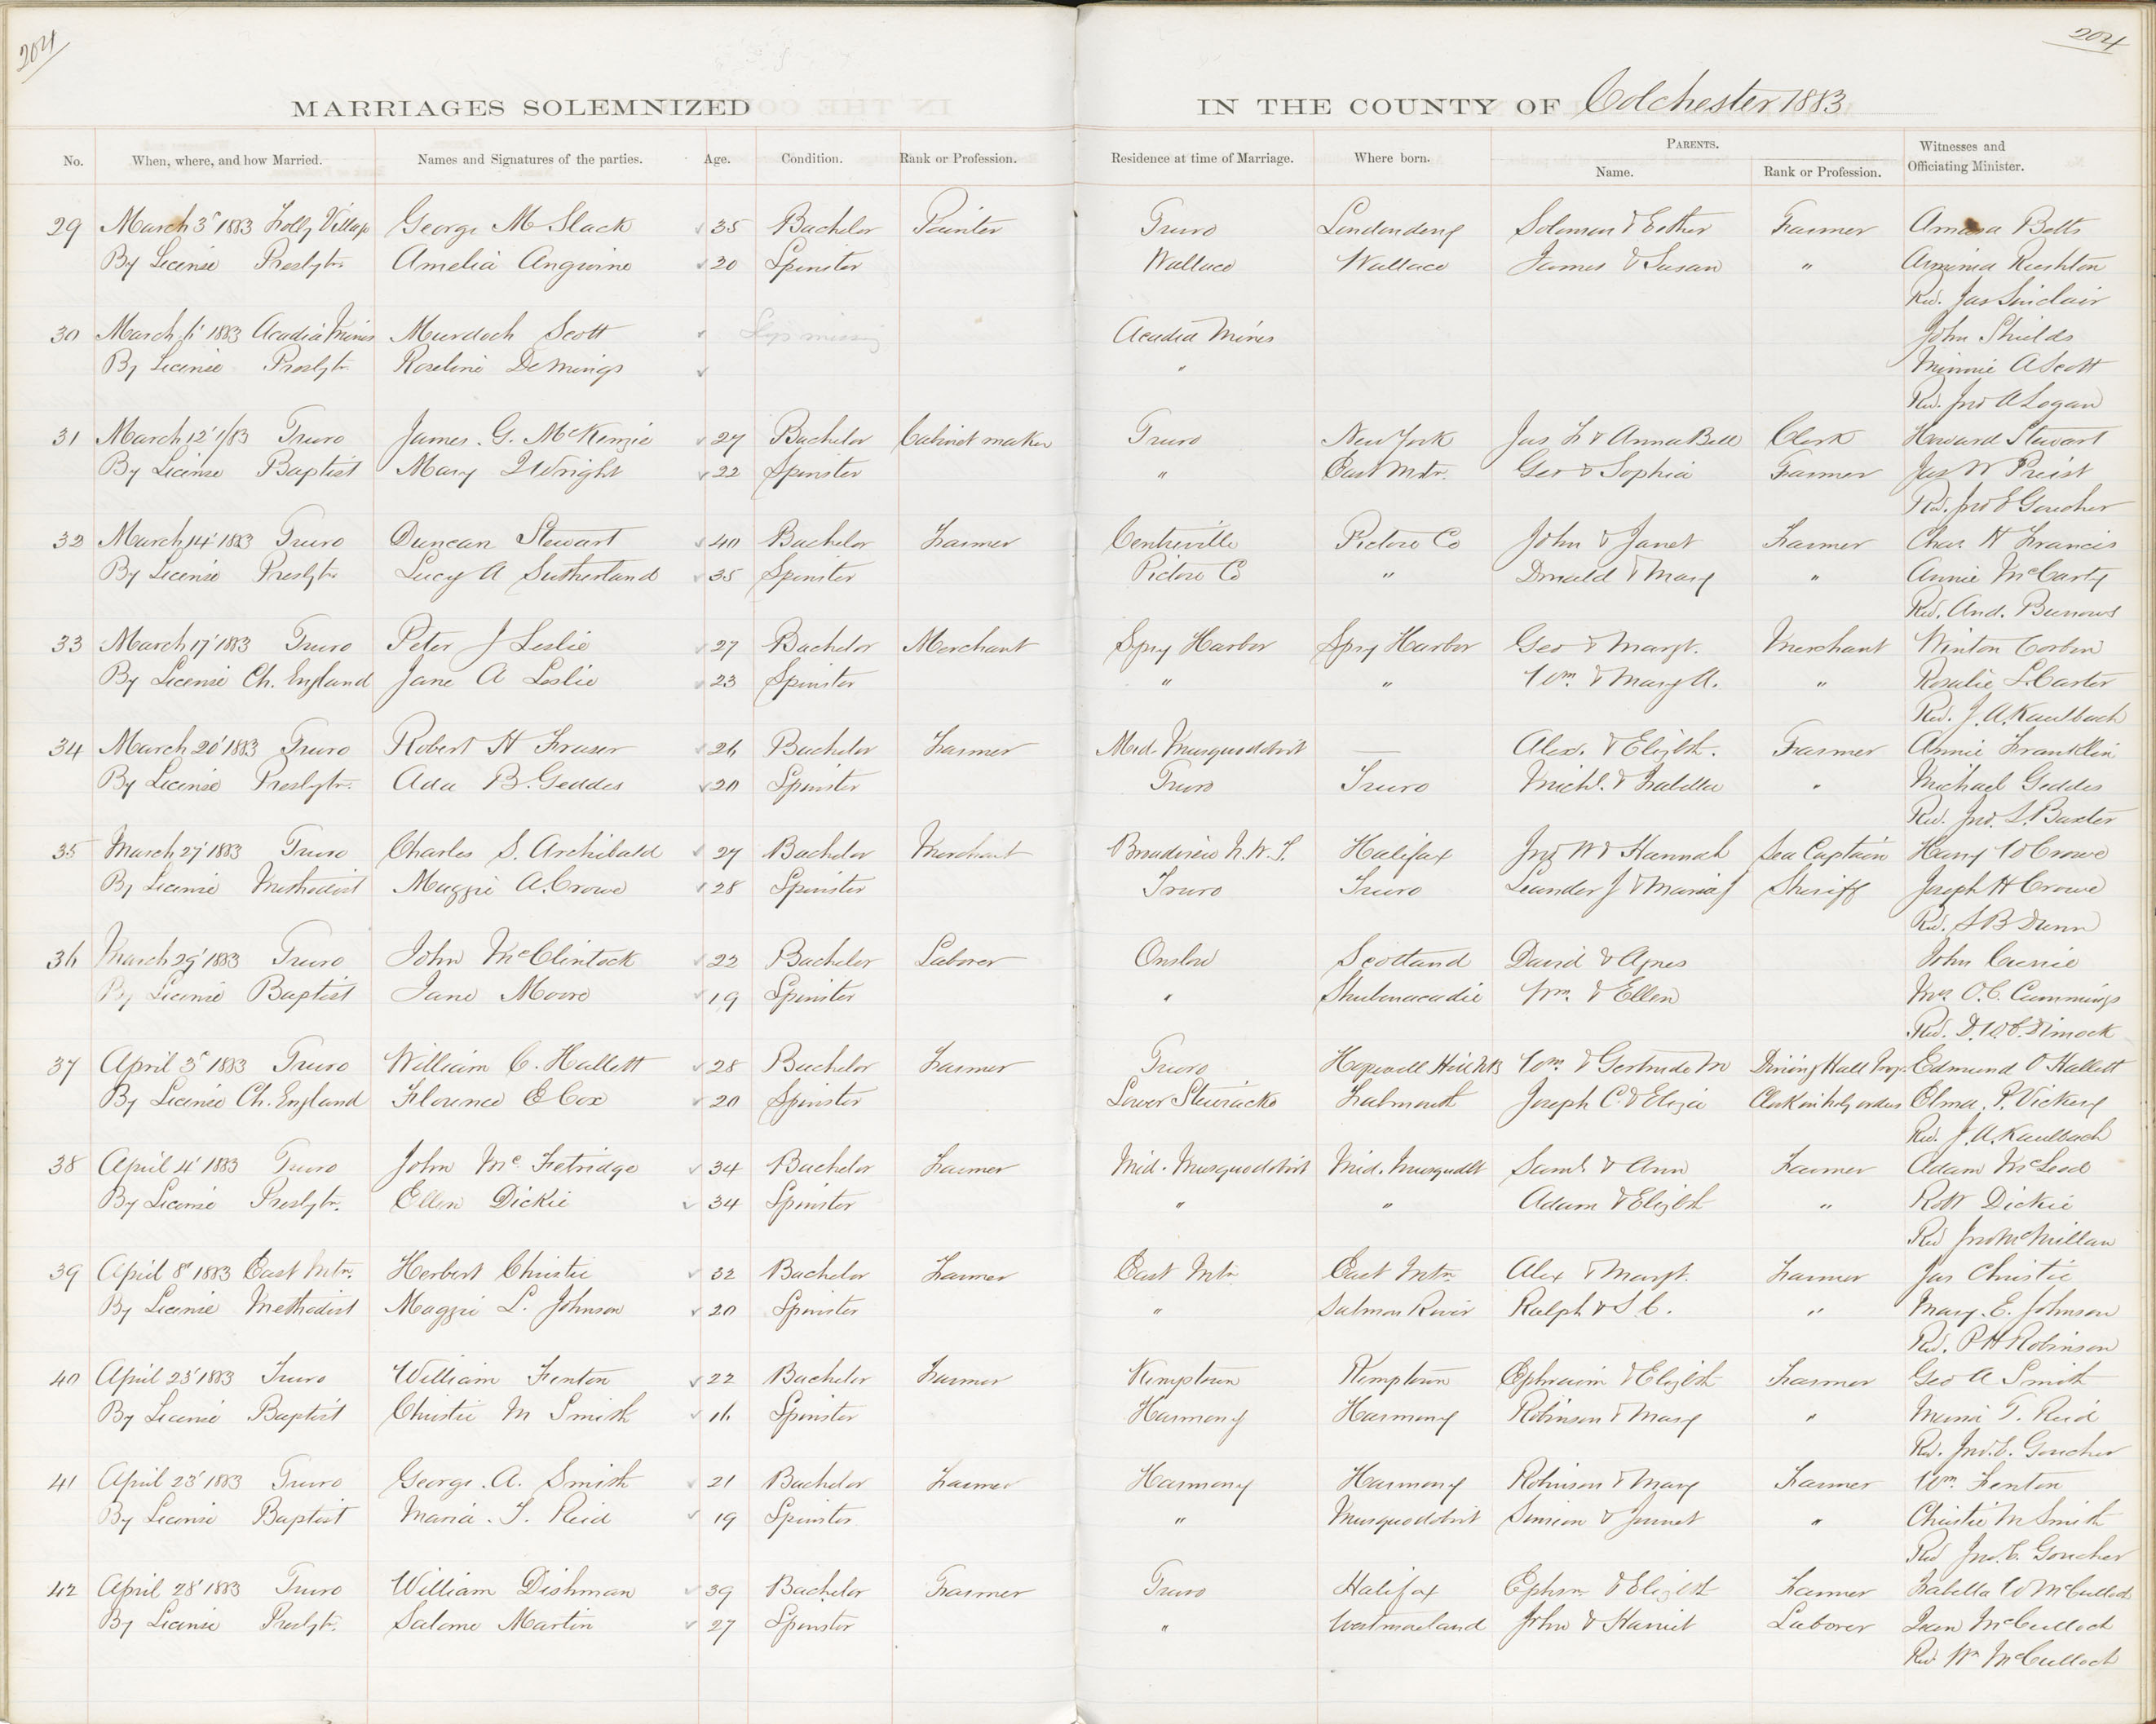 204
204
MARRIAGES SOLEMNIZED IN THE COUNTY OF Colchester 1883
No. When, where, and how Married. Names and Signatures of the parties. Age. Condition. Rank or Profession. Residence at time of Marriage. Where born. PARENTS. Name. Rank or Profession. Witnesses and Officiating Minister.
29 March 3' 1883 Folly Village George M Slack 35 Bachelor Painter Truro Londonderry Solomon & Esther Farmer Amasa Betts
By License Presbytn. Amelia Angwine 20 Spinster Wallace Wallace James & Susan " Armenia Rushton
Rev. Jas Sinclair
30 March 1883 Acadia Mines Murdoch Scott Slip missing Acadia Mines John Shields
By License Presbytn. Roseline Demings " Minnie A Scott
Rev. Jno A Logan
31 March 12' 1/83 Truro James. G. McKenzie 27 Bachelor Cabinet maker Truro New York Jas F & Anna Bell Clerk Howard Stewart
By License Baptist Mary J Wright 22 Spinster " East Mtn. Geo & Sophia Farmer Jas W Preist
Rev. Jno E Goucher
32 March 14' 1883 Truro Duncan Stewart 40 Bachelor Farmer Centreville Pictou Co John & Janet Farmer Chas H Francis
By License Presbytn Lucy A Sutherland 35 Spinster Pictou Co " Donald & Mary " Annie McCarty
Rev. And. Burrows
33 March 17' 1883 Truro Peter J Leslie 27 Bachelor Merchant Spry Harbor Spry Harbor Geo & Margt. Merchant Winton Corbin
By License Ch. England Jane A Leslie 23 Spinster " " Wm. & Mary A. " Rosalie L. Carter
Rev. J. A. Kaulbach
34 March 20' 1883 Truro Robert H Fraser 26 Bachelor Farmer Mid. Musquodoboit — Alex. & Elizbth. Farmer Annie Franklin
By License Presbytn. Ada B. Geddes 20 Spinster Truro Truro Michl. & Isabella " Michael Geddes
Rev. Jno. L. Baxter
35 March 27' 1883 Truro Charles S. Archibald 27 Bachelor Merchant Broadview N. W. T. Halifax Jno W & Hannah Sea Captain Harry W Crowe
By License Methodist Maggie A. Crowe 28 Spinster Truro Truro Leander J & Maria J Sheriff Joseph H Crowe
Rev. S B Dunn
36 March 29' 1883 Truro John McClintock 22 Bachelor Laborer Onslow Scotland David & Agnes John Currie
By License Baptist Jane Moore 19 Spinster " Shubenacadie Wm. & Ellen Mrs O. C. Cummings
Rev. D. W. C. Dimock
37 April 3' 1883 Truro William C. Hallett 28 Bachelor Farmer Truro Hopewell Hill NB Wm & Gertrude M Dining Hall Prop. Edmund O Hallett
By License Ch. England Florence E Cox 20 Spinster Lower Stewiacke Falmouth Joseph C. & Eliza Clerk in holy orders Elma. P. Vickery
Rev. J. A. Kaulbach
38 April 4' 1883 Truro John Mc Fetridge 34 Bachelor Farmer Mid. Musquodoboit Mid. Musqudbt Saml & Ann Farmer Adam McLeod
By License Presbytn. Ellen Dickie 34 Spinster " " Adam & Elizbth " Robt Dickie
Rev Jno McMillan
39 April 8' 1883 East Mtn. Herbert Christie 32 Bachelor Farmer East Mtn East Mtn Alex & Margt. Farmer Jas Christie
By License Methodist Maggie L. Johnson 20 Spinster " Salmon River Ralph & S. C. " Mary. E. Johnson
Rev. P H Robinson
40 April 23' 1883 Truro William Fenton 22 Bachelor Farmer Kemptown Kemptown Ephraim & Elizbth Farmer Geo A Smith
By License Baptist Christie M Smith 16 Spinster Harmony Harmony Robinson & Mary " Maria T. Reid
Rev. Jno. E. Goucher
41 April 23' 1883 Truro George. A. Smith 21 Bachelor Farmer Harmony Harmony Robinson & Mary Farmer Wm. Fenton
By License Baptist Maria. T. Reid 19 Spinster " Musquodoboit Simeon & Janet " Christie M Smith
Rev Jno. E. Goucher
42 April 28' 1883 Truro William Dishman 39 Bachelor Farmer Truro Halifax Ephrm & Elizbth Farmer Isabella W McCulloch
By License Presbytn. Salome Martin 27 Spinster " Westmoreland John & Harriet Laborer Jean McCulloch
Rev Wm McCulloch